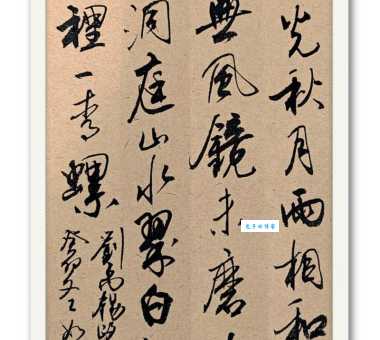 光秋月两相和
無風鏡未磨
洞庭山水翠白
裡一青螺
劉禹錫
癸卯冬